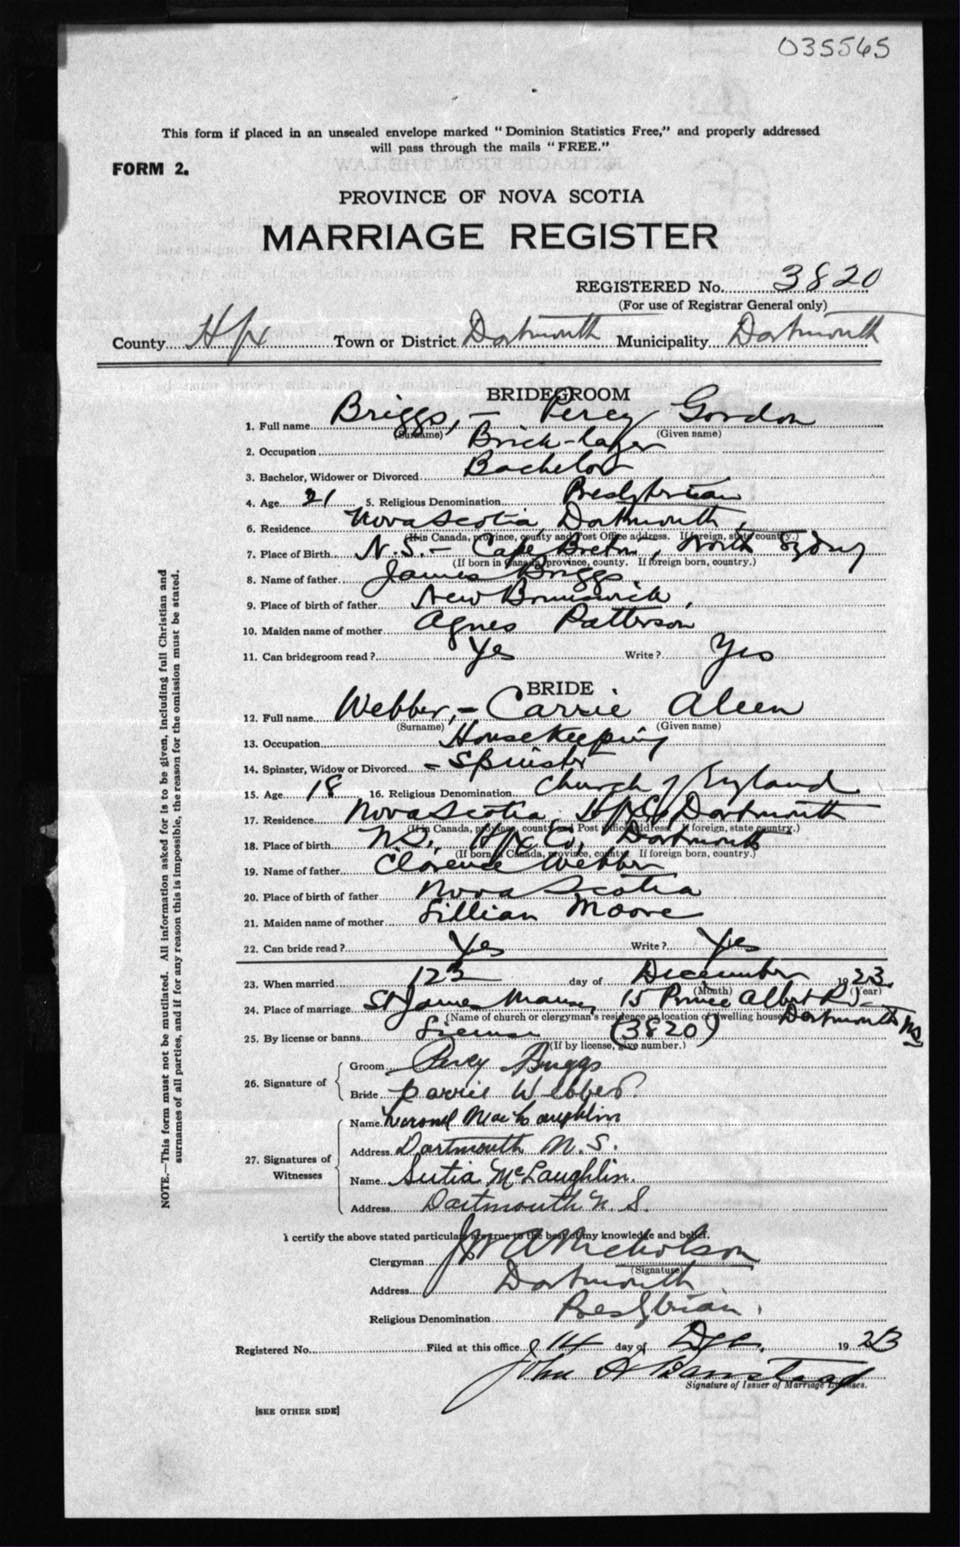 035565
This form if placed in an unsealed envelope marked "Dominion Statistics Free," and properly addressed
will pass through the mails "FREE."
FORM 2.
PROVINCE OF NOVA SCOTIA
MARRIAGE REGISTER
REGISTERED No. 3820
(For use of Registrar General only)
County Hfx Town or District Dartmouth Municipality Dartmouth
BRIDEGROOM
1. Full name Briggs, - Percy Gordon
(Surname) (Given name)
2. Occupation Brick-layer
3. Bachelor, Widower or Divorced Bachelor
4. Age 21 5. Religious Denomination Presbyterian
6. Residence Nova Scotia, Dartmouth,
(If in Canada, province, county and Post Office address. If foreign, state country.)
7. Place of Birth N.S. - Cape Breton, North Sydney
(If born in Canada, province, county. If foreign born, country.)
8. Name of father James Briggs
9. Place of birth of father New Brunswick,
10. Maiden name of mother Agnes Patterson
11. Can bridegroom read? Yes Write? Yes
BRIDE
12. Full name Webber, - Carrie Aleen
(Surname) (Given name)
13. Occupation Housekeeping
14. Spinster, Widow or Divorced - Spinster
15. Age 18 16. Religious Denomination Church of England
17. Residence Nova Scotia, Hfx Co, Dartmouth
(If in Canada, province, county and Post Office address. If foreign, state country.)
18. Place of birth N.S. Hfx Co, Dartmouth
(If born in Canada, province, county. If foreign born, country.)
19. Name of father Clarence Webber
20. Place of birth of father Nova Scotia
21. Maiden name of mother Lillian Moore
22. Can bride read? Yes Write? Yes
23. When married 12 day of December 1923
(Month) (Year)
24. Place of marriage St James Manse, 15 Prince Albert R) Dartmouth NS
(Name of church or clergyman's residence or location of dwelling house)
25. By license or banns License (3820)
(If by license, give number.)
26. Signature of
Groom Percy Briggs
Bride Carrie Webber
27. Signatures of Witnesses
Name MacLaughlin
Address Dartmouth N.S.
Name McLaughlin.
Address Dartmouth N.S.
I certify the above stated particulars are true to the best of my knowledge and belief.
Clergyman Nicholson
(Signature)
Address Dartmouth
Religious Denomination Presbyrian.
Registered No. Filed at this office 14 day of Dec. 1923
John A Banstead
Signature of Issuer of Marriage Licenses.
[SEE OTHER SIDE]
NOTE.—This form must not be mutilated. All information asked for is to be given, including full Christian and
surnames of all parties, and if for any reason this is impossible, the reason for the omission must be stated.